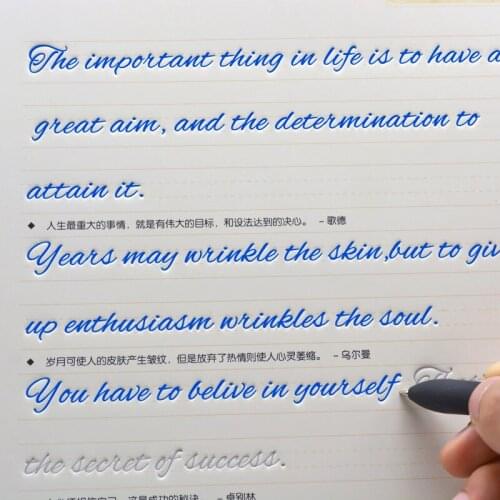 The important thing in life is to have a
great aim, and the determination to
attain it.
◆ 人生最重大的事情，就是有伟大的目标，和设法达到的决心。 -歌德
Years may wrinkle the skin,but to giv
up enthusiasm wrinkles the soul.
◆ 岁月可使人的皮肤产生皱纹，但是放弃了热情则使人心灵萎缩。 -乌尔曼
You have to belive in yourself
the secret of success.
自己，这是成功的秘诀。 -卓别林